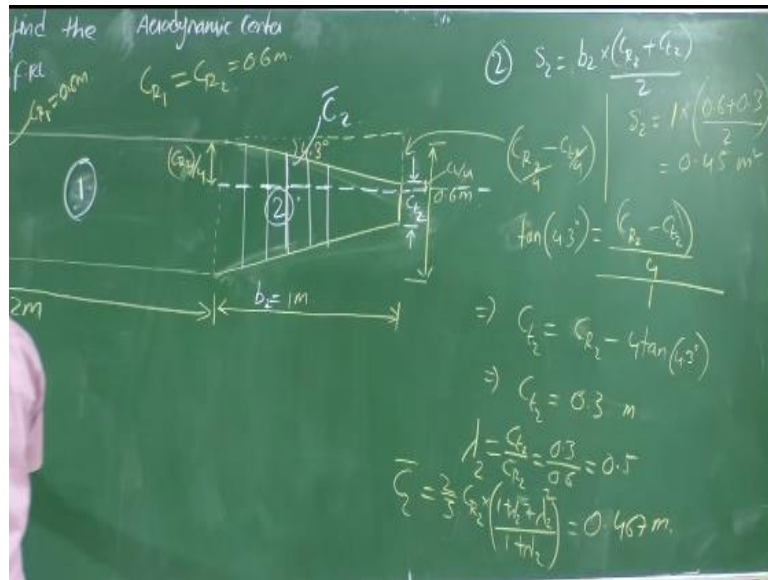 find the Aerodynamic Center
of
C_R1 = 0.6m
C_R1 = C_R2 = 0.6m.
C̄_2
4.3°
(C_R2)/4
1
2
C_t2
C_t/4
0.6m
2m
b_2 = 1M
(C_R2/4 - C_t2/4)
② S_2 = b_2 × (C_R2 + C_t2)/2
S_2 = 1 × (0.6+0.3)/2
= 0.45 m²
tan(4.3°) = ((C_R2 - C_t2)/4)/1
⇒ C_t2 = C_R2 - 4tan(4.3°)
⇒ C_t2 = 0.3 m
λ_2 = C_t2/C_R2 = 0.3/0.6 = 0.5
C̄_2 = 2/3 C_R2 × ((1+λ_2+λ_2²)/(1+λ_2)) = 0.467 m.